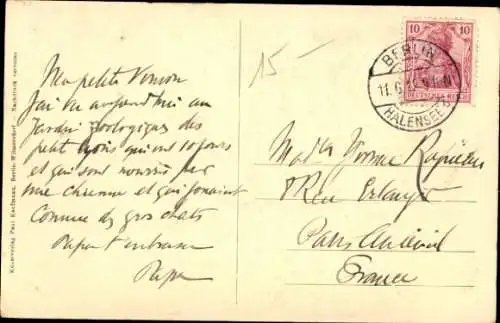 Ma petite
J'ai vu aujourd'hui au
Jardin Zoologique des
petit lions qui ont 10 jours
et qui sont nourris par
une chienne et qui jouaient
Comme des gros chats
Papa t'embrasse
Papa
Kunstverlag Paul Kaufmann, Berlin-Wilmersdorf. Nachdruck verboten
15-
10 10
DEUTSCHES REICH
BERLIN
11.6.
HALENSEE
Yvonne
8 Rue Erlanger
Paris Auteuil
France